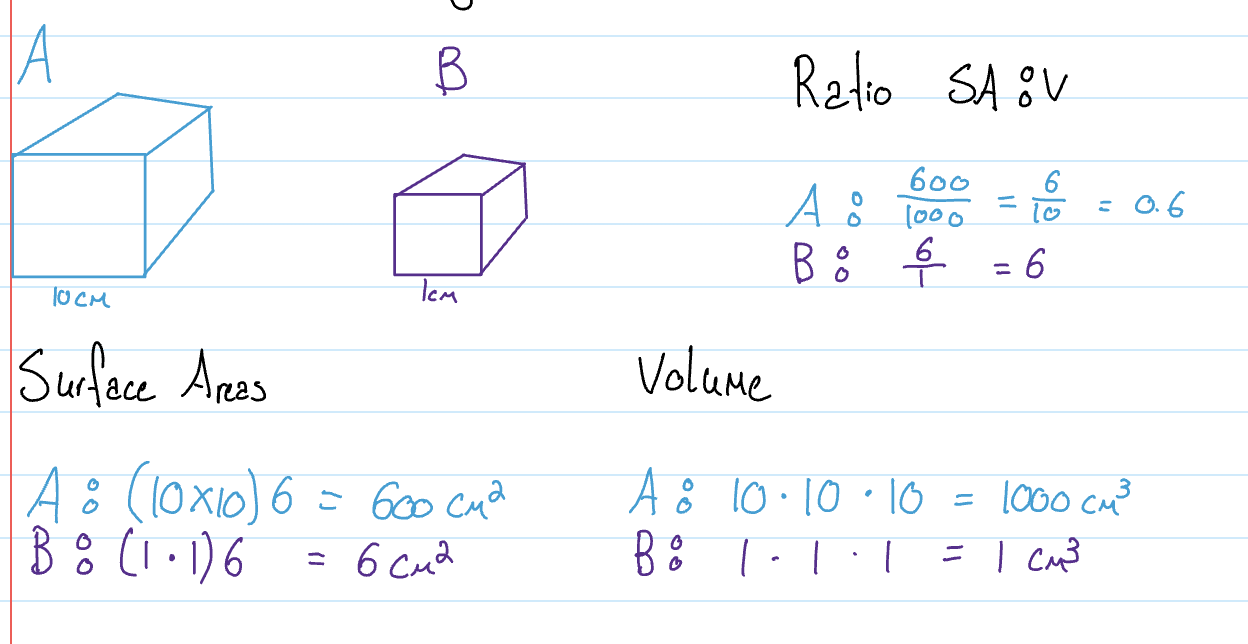 A
B
Ratio SA:V
A: 600/1000 = 6/10 = 0.6
B: 6/1 = 6
10cm
1cm
Surface Areas
Volume
A: (10x10)6 = 600 cm²
B: (1·1)6 = 6 cm²
A: 10·10·10 = 1000 cm³
B: 1·1·1 = 1 cm³